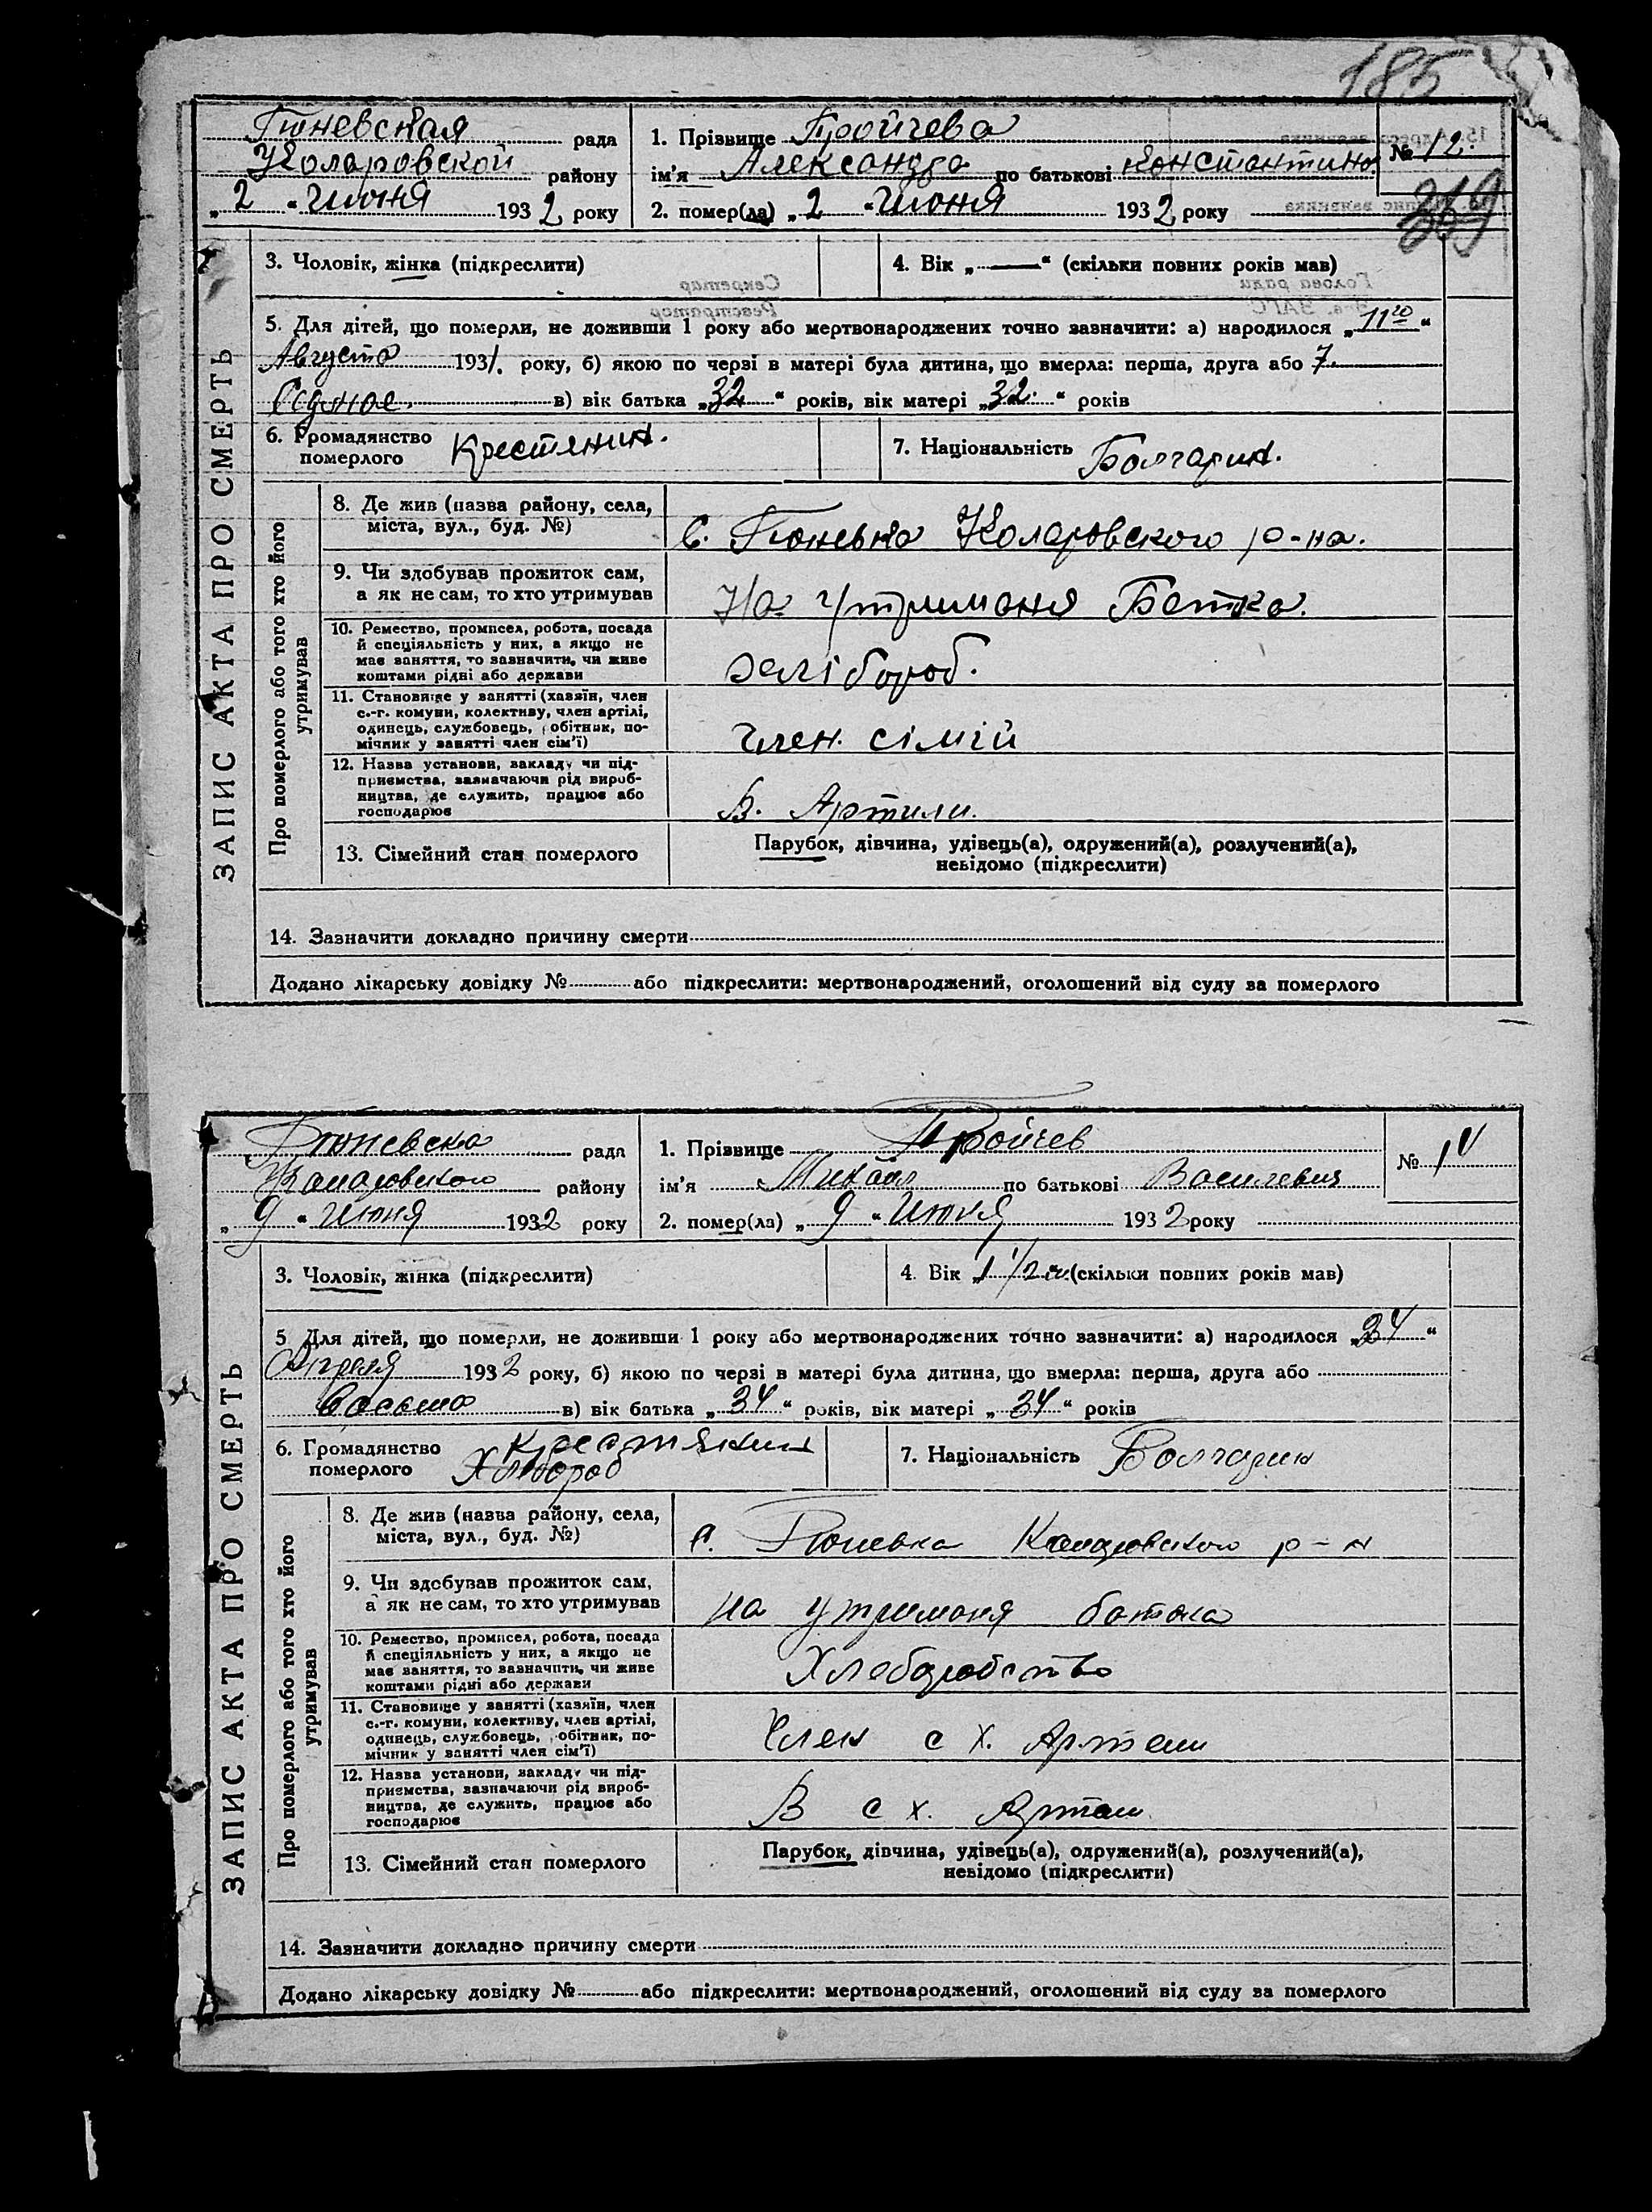 185
Гюневская рада
Коларовской району
„2“ Июня 1932 року
1. Прізвище Тройчева
ім'я Александра по батькові Константино.
2. помер(ла) „2“ Июня 1932 року
№ 12.
369
ЗАПИС АКТА ПРО СМЕРТЬ
3. Чоловік, жінка (підкреслити)
4. Вік „—“ (скільки повних років мав)
5. Для дітей, що померли, не доживши 1 року або мертвонароджених точно зазначити: а) народилося „11го“
Августа 1931. року, б) якою по черзі в матері була дитина, що вмерла: перша, друга або 7.
в) вік батька „32“ років, вік матері „32.“ років
6. Громадянство померлого Крестянин.
7. Національність Болгарин.
Про померлого або того хто його утримував
8. Де жив (назва району, села,
міста, вул., буд. №)
С. Гюневка Коларовского р-на.
9. Чи здобував прожиток сам,
а як не сам, то хто утримував
На утриманя Батка.
10. Ремество, промисел, робота, посада
й спеціяльність у них, а якщо не
має заняття, то зазначити, чи живе
коштами рідні або держави
хлібороб.
11. Становище у занятті (хазяїн, член
с.-г. комуни, колективу, член артілі,
одинець, службовець, робітник, по-
мічник у занятті член сім'ї)
член. сімій
12. Назва установи, закладу чи під-
приємства, зазначаючи рід вироб-
ництва, де служить, працює або
господарює
В. Артили.
13. Сімейний стан померлого
Парубок, дівчина, удівець(а), одружений(а), розлучений(а),
невідомо (підкреслити)
14. Зазначити докладно причину смерти
Додано лікарську довідку № або підкреслити: мертвонароджений, оголошений від суду за померлого
Гюневска рада
Коларовского району
„9“ Июня 1932 року
1. Прізвище Тройчев
ім'я Михаил по батькові Василевич
2. помер(ла) „9“ Июня 1932 року
№ 14
ЗАПИС АКТА ПРО СМЕРТЬ
3. Чоловік, жінка (підкреслити)
4. Вік „1 1/2 м.(скільки повних років мав)
5 Для дітей, що померли, не доживши 1 року або мертвонароджених точно зазначити: а) народилося „24“
Апреля 1932 року, б) якою по черзі в матері була дитина, що вмерла: перша, друга або
Восьма в) вік батька „34“ років, вік матері „34“ років
6. Громадянство померлого Хлебороб Крестянин
7. Національність Болгарин
Про померлого або того хто його утримував
8. Де жив (назва району, села,
міста, вул., буд. №)
С. Гюневка Коларовского р-н
9. Чи здобував прожиток сам,
а як не сам, то хто утримував
на утриманя батака
10. Ремество, промисел, робота, посада
й спеціяльність у них, а якщо не
має заняття, то зазначити, чи живе
коштами рідні або держави
Хлеборобство
11. Становище у занятті (хазяїн, член
с.-г. комуни, колективу, член артілі,
одинець, службовець, робітник, по-
мічник у занятті член сім'ї)
Член с х. Артели
12. Назва установи, закладу чи під-
приємства, зазначаючи рід вироб-
ництва, де служить, працює або
господарює
В с х. Артели
13. Сімейний стан померлого
Парубок, дівчина, удівець(а), одружений(а), розлучений(а),
невідомо (підкреслити)
14. Зазначити докладно причину смерти
Додано лікарську довідку № або підкреслити: мертвонароджений, оголошений від суду за померлого